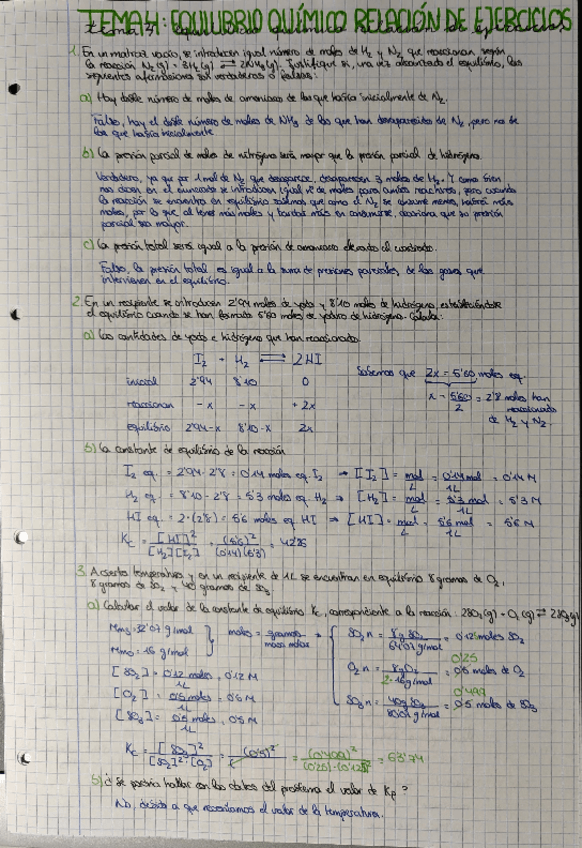 TEMA 4: EQUILIBRIO QUÍMICO RELACIÓN DE EJERCICIOS
1. En un matraz vacío, se introducen igual número de moles de H₂ y N₂ que reaccionan según
la reacción N₂(g) + 3H₂(g) ⇌ 2NH₃(g). Justifique si, una vez alcanzado el equilibrio, las
siguientes afirmaciones son verdaderas o falsas:
a) Hay doble número de moles de amoniaco de los que había inicialmente de N₂.
Falso, hay el doble número de moles de NH₃ de los que han desaparecido de N₂, pero no de
los que había inicialmente
b) La presión parcial de moles de nitrógeno será mayor que la presión parcial de hidrógeno.
Verdadero, ya que por 1 mol de N₂ que desaparece, desaparecen 3 moles de H₂. Y como bien
nos dicen en el enunciado se introducen igual nº de moles para ambos reactivos, pero cuando
la reacción se encuentra en equilibrio sabemos que como el N₂ se consume menos, habrá más
moles, por lo que al tener más moles y tardar más en consumirse, ocasiona que su presión
parcial sea mayor.
c) La presión total será igual a la presión de amoniaco elevado al cuadrado.
Falso, la presión total es igual a la suma de presiones parciales, de los gases que
intervienen en el equilibrio.
2. En un recipiente se introducen 2'94 moles de yodo y 8'10 moles de hidrógeno, estableciéndose
el equilibrio cuando se han formado 5'60 moles de yoduro de hidrógeno. Calcula:
a) Las cantidades de yodo e hidrógeno que han reaccionado.
I₂ + H₂ ⇌ 2HI
inicial 2'94 8'10 0
reaccionan -x -x +2x
equilibrio 2'94-x 8'10-x 2x
Sabemos que 2x = 5'60 moles eq.
x = 5'60/2 = 2'8 moles han
reaccionado
de H₂ y N₂.
b) La constante de equilibrio de la reacción
I₂ eq. = 2'94 - 2'8 = 0'14 moles eq. I₂ → [I₂] = mol/L = 0'14 mol/1L = 0'14 M
H₂ eq. = 8'10 - 2'8 = 5'3 moles eq. H₂ → [H₂] = mol/L = 5'3 mol/1L = 5'3 M
HI eq = 2·(2'8) = 5'6 moles eq. HI → [HI] = mol/L = 5'6 mol/1L = 5'6 M
Kc = [HI]²/[H₂][I₂] = (5'6)²/(0'14)(5'3) = 42'26
3. A cierta temperatura y en un recipiente de 1L se encuentran en equilibrio 8 gramos de O₂,
8 gramos de SO₂ y 40 gramos de SO₃
a) Calcular el valor de la constante de equilibrio Kc, correspondiente a la reacción: 2SO₂(g) + O₂(g) ⇌ 2SO₃(g)
Mms = 32'07 g/mol
Mmo = 16 g/mol
moles = gramos/masa molar
SO₂ n = 8g SO₂/64'07 g/mol = 0'12 moles SO₂
O₂ n = 8g O₂/2·16 g/mol = 0'5 moles de O₂ 0'25
SO₃ n = 40g SO₃/80'07 g/mol = 0'5 moles de SO₃ 0'499
[SO₂] = 0'12 moles/1L = 0'12 M
[O₂] = 0'5 moles/1L = 0'5 M
[SO₃] = 0'5 moles/1L = 0'5 M
Kc = [SO₃]²/[SO₂]²·[O₂] = (0'5)² = (0'499)²/(0'25)·(0'125)² = 63'74
b) ¿Se podría hallar con los datos del problema el valor de Kp?
No, debido a que necesitamos el valor de la temperatura.